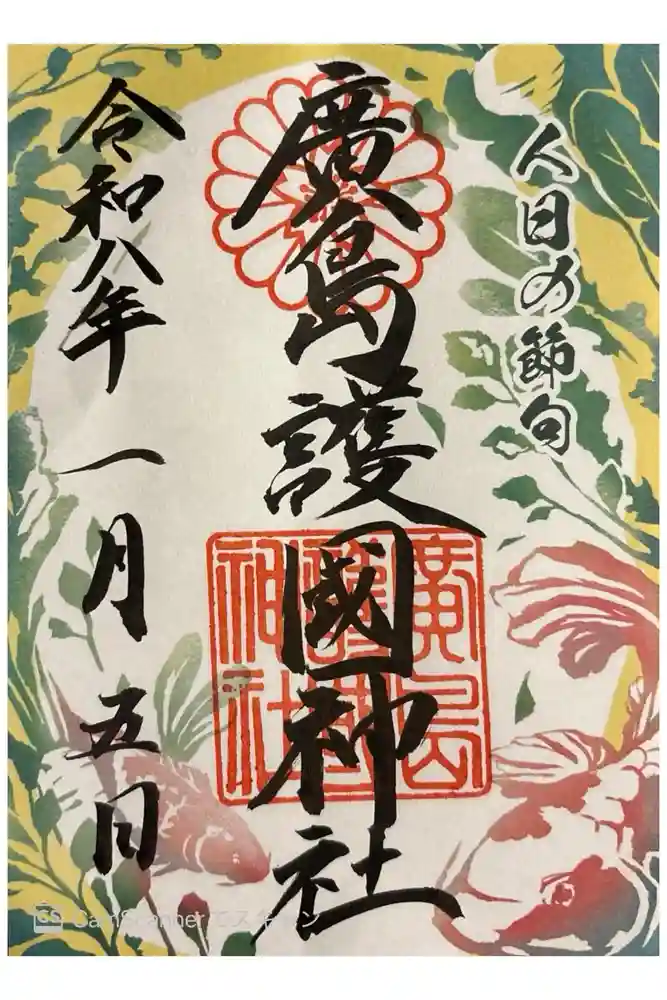 人日の節句
廣島護國神社
廣島
護國
神社
令和八年一月五日
CS CamScanner でスキャン